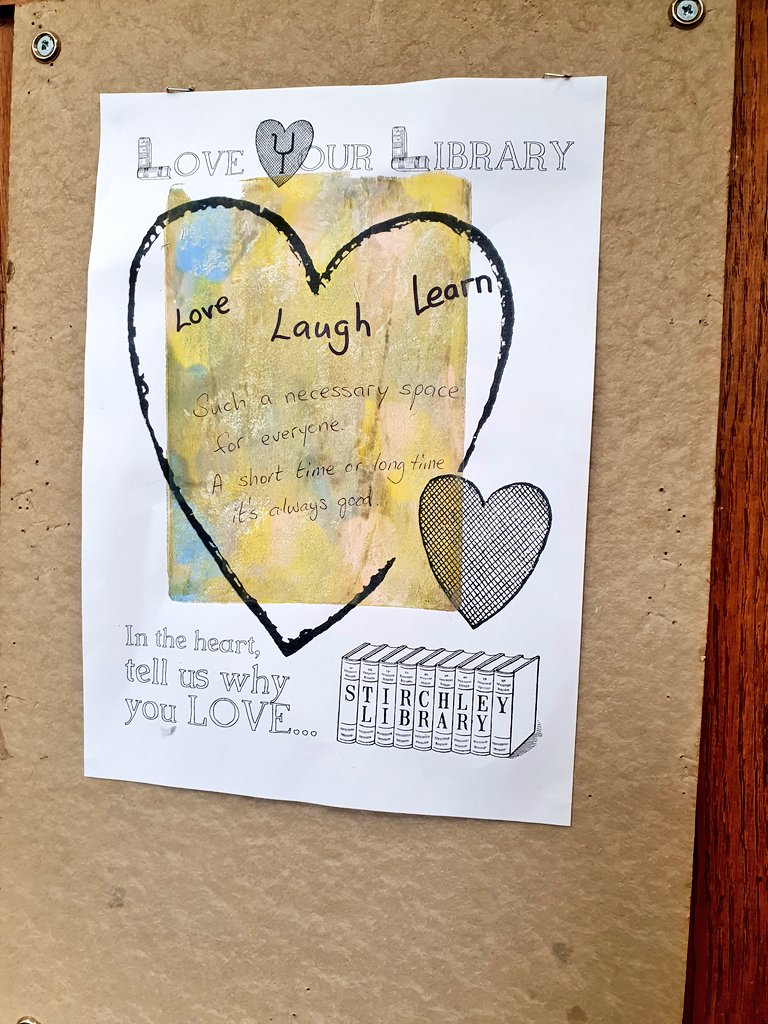 LOVE YOUR LIBRARY
Love Laugh Learn
Such a necessary space
for everyone.
A short time or long time
it's always good.
In the heart,
tell us why
you LOVE...
STIRCHLEY
LIBRARY